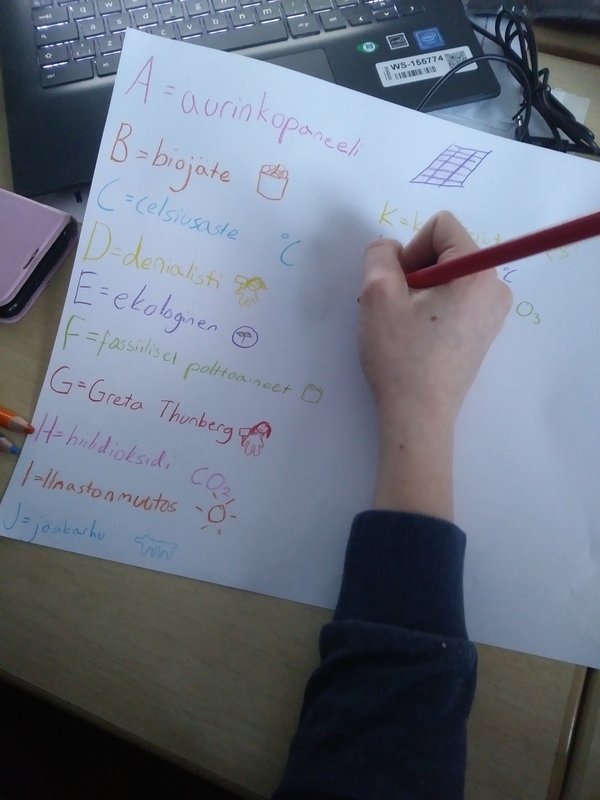 WS-155774
intel
A = aurinkopaneeli
B = biojäte
C = celsiusaste °C
D = denialisti
E = ekologinen
F = fossiiliset polttoaineet
G = Greta Thunberg
H = hiilidioksidi CO2
I = Ilmastonmuutos
J = jääkarhu
K = k
°C
O3